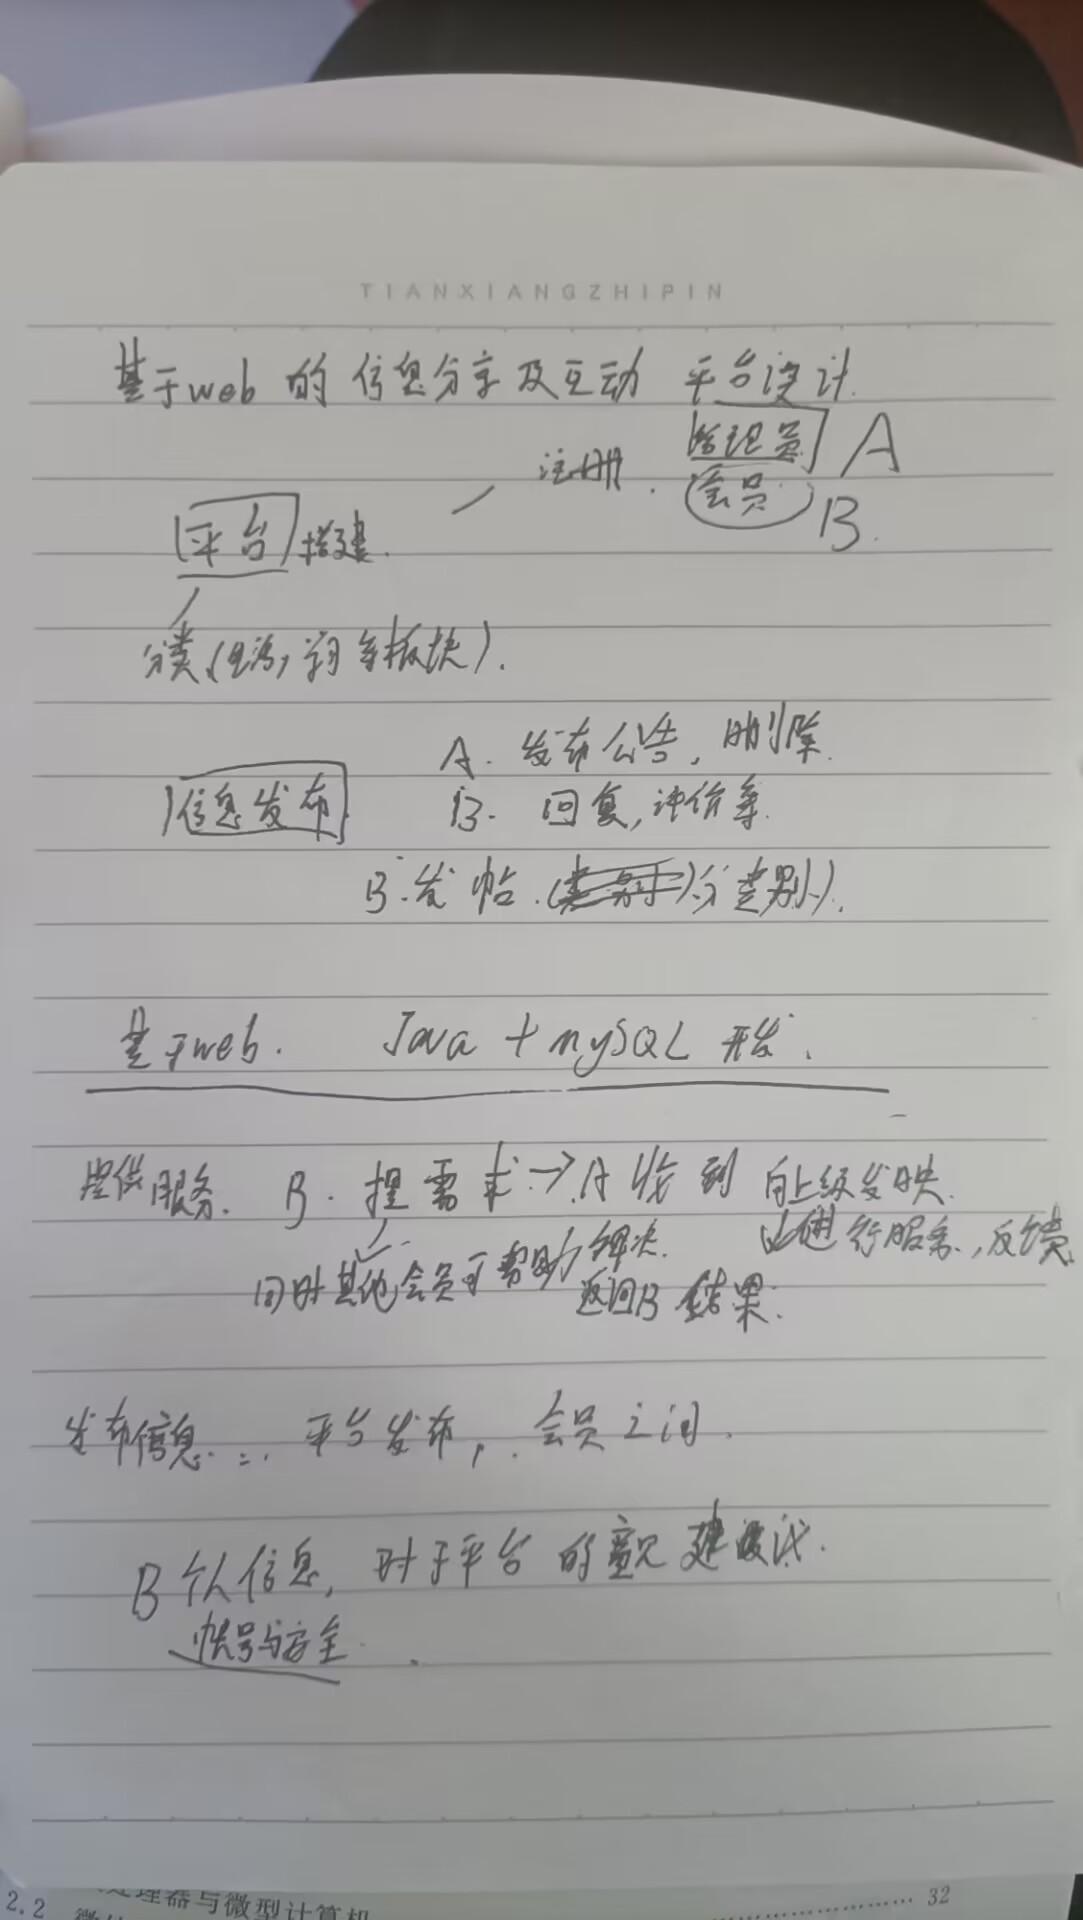 TIANXIANGZHIPIN
基于web的信息分享及互动 平台设计.
管理员 A
注册. 会员 B.
平台 搭建.
分类(生活,学习等板块).
A. 发布公告, 删除.
信息发布 B. 回复,评价等.
B.发帖.(分类别).
基于web. Java + mySQL 开发.
提供服务. B. 提需求→A收到 向上级反映.
进行服务,反馈
同时其他会员可帮助解决. 返回B 结果.
发布信息... 平台发布, 会员之间.
B个人信息, 对于平台的意见建议.
帐号与安全.
2.2 处理器与微型计算机 32